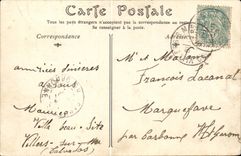 Carte Postale
Tous les pays étrangers n'acceptent pas la correspondance au recto.
Se renseigner à la poste.
Correspondance
Adresse
amitiés sincères
à tous
Maurice
Villa Beau-Site
Villers-sur-Mer
Calvados
Mr et Madame
François Lacanal
Marquefave
par Carbonne Hte Garonne